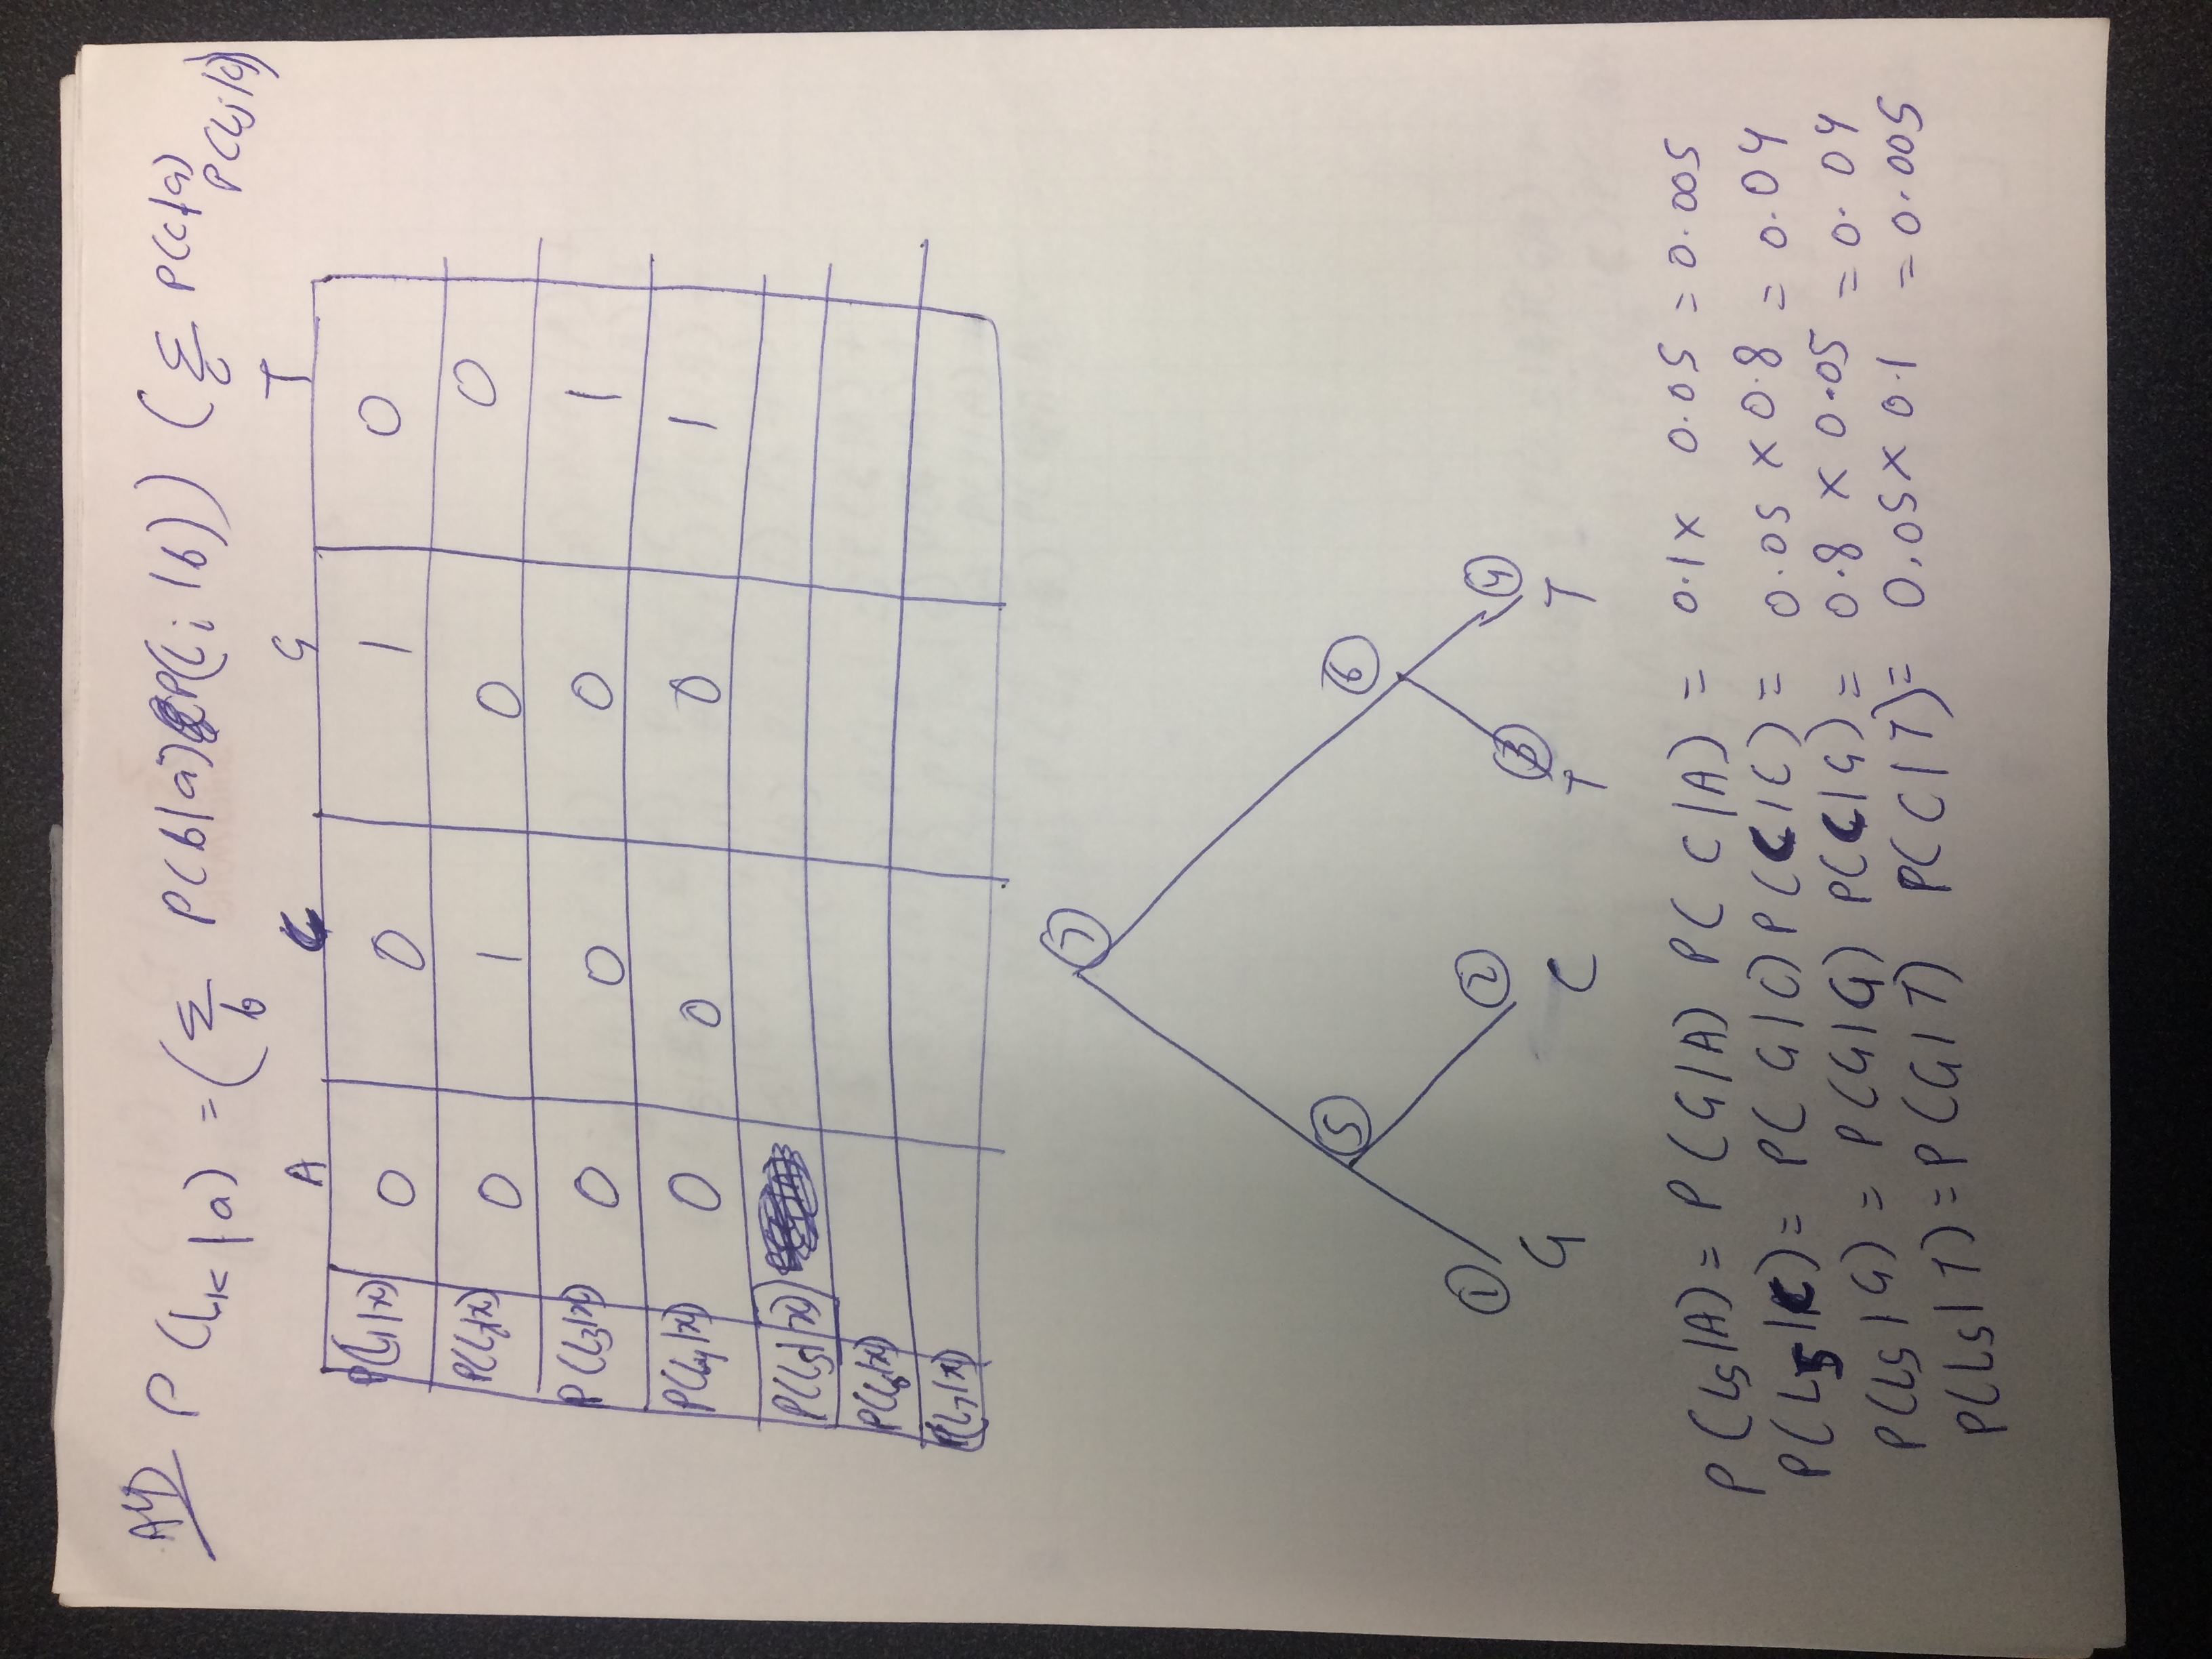 A4D P(Lk|a) = (Σb P(b|a) P(Li|b)) (Σc P(c|a) P(Lj|c))
A C G T
P(L1|x) 0 0 1 0
P(L2|x) 0 1 0 0
P(L3|x) 0 0 0 1
P(L4|x) 0 0 0 1
P(L5|x)
P(L6|x)
P(L7|x)
7
5 6
1 2 3 4
G C T T
P(L5|A) = P(G|A) P(C|A) = 0.1 x 0.05 = 0.005
P(L5|C) = P(G|C) P(C|C) = 0.05 x 0.8 = 0.04
P(L5|G) = P(G|G) P(C|G) = 0.8 x 0.05 = 0.04
P(L5|T) = P(G|T) P(C|T) = 0.05 x 0.1 = 0.005